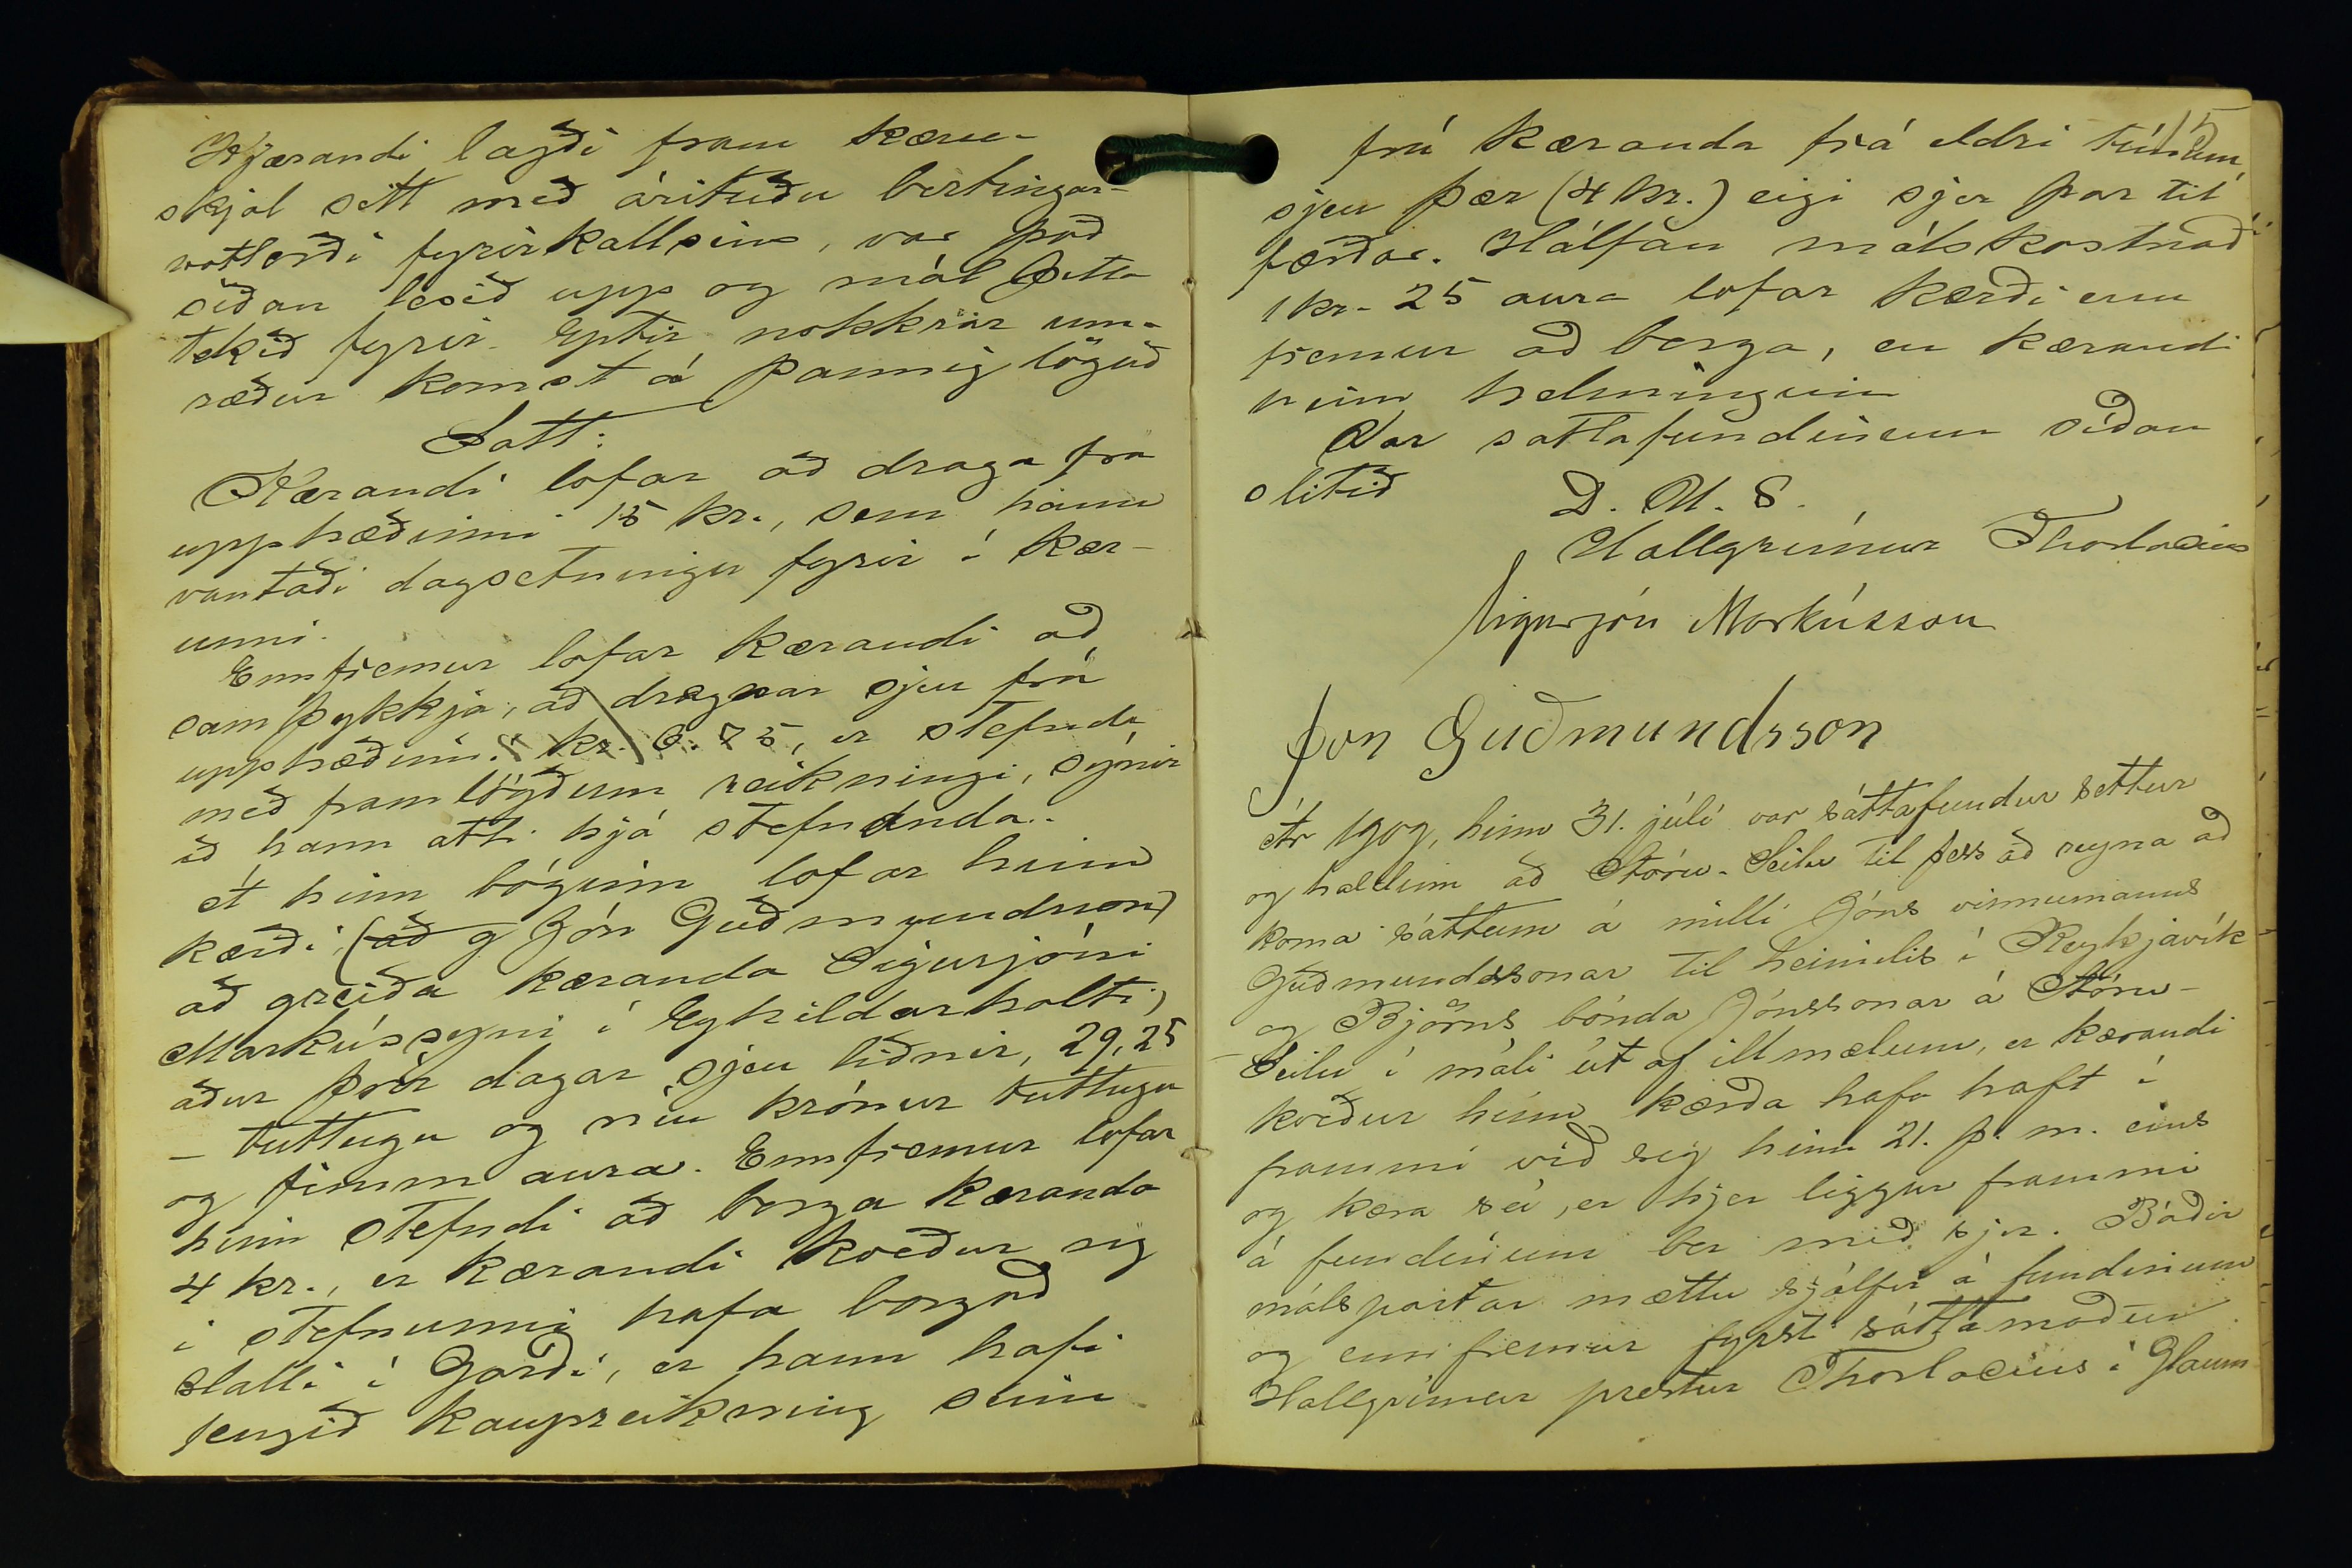 Kærandi lagði fram kæru-
skjal sitt með árituðu birtingar-
vottorði fyrirkallsins, var það
síðan lesið upp og mál þetta
tekið fyrir. Eptir nokkrar um-
ræður komst á þannig löguð
Satt:
Kærandi lofar að draga frá
upphæðinni 15 kr., sem hann
vantaði dagsetningu fyrir í kær-
unni.
Ennfremur lofar kærandi að
samþykkja, að dregnar sjeu frá
upphæðinni kr. 6.75, er stefndi,
með framlögðum reikningi, sýnir
að hann átti hjá stefnanda.
Á hinn bóginn lofar hinn
kærði, (að g Jón Guðmundsson)
að greiða kæranda Sigurjóni
Markússyni í Eyhildarholti,
áður þrír dagar sjeu liðnir, 29,25
- tuttugu og níu krónur tuttugu
og fimm aura. Ennfremur lofar
hinn stefndi að borga kæranda
4 kr., er kærandi kveður sig
í stefnunni hafa borgað
Halli í Garði, er hann hafi
fengið kaupreikning sinn
15
frá kæranda frá eldri tímum,
sjeu þær (4 kr.) eigi sjer þar til
færðar. Hálfan málskostnað
1 kr. 25 aura lofar kærði enn
fremur að borga, en kærandi
hinn helminginn
Var sáttafundinum síðan
slitið
D. U. S.
Hallgrímur Thorlacius
Sigurjón Markússon
Jón Guðmundsson
Ár 1909, hinn 31. júlí var sáttafundur settur
og haldinn að Stóru-Seilu til þess að reyna að
koma sáttum á milli Jóns vinnumanns
Guðmundssonar til heimilis í Reykjavík
og Björns bónda Jónssonar á Stóru-
-Seilu í máli út af illmælum, er kærandi
kveður hinn kærða hafa haft í
frammi við sig hinn 21. þ. m. eins
og kæra sú, er hjer liggur frammi
á fundinum ber með sjer. Báðir
málspartar mættu sjálfir á fundinum
og ennfremur fyrsti sáttamaður
Hallgrímur prestur Thorlacius í Glaum